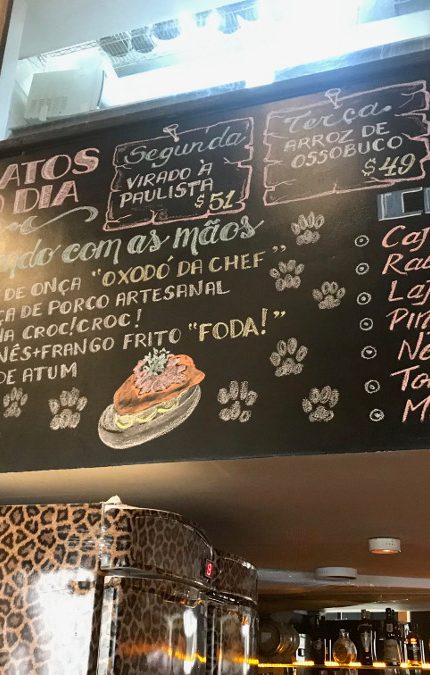 ATOS
DIA
Segunda
VIRADO À
PAULISTA
$51
Terça
ARROZ DE
OSSOBUCO
$49
ndo com as mãos
DE ONÇA "OXODÓ DA CHEF"
ÇA DE PORCO ARTESANAL
HA CROC! CROC!
NÊS+FRANGO FRITO "FODA!"
DE ATUM